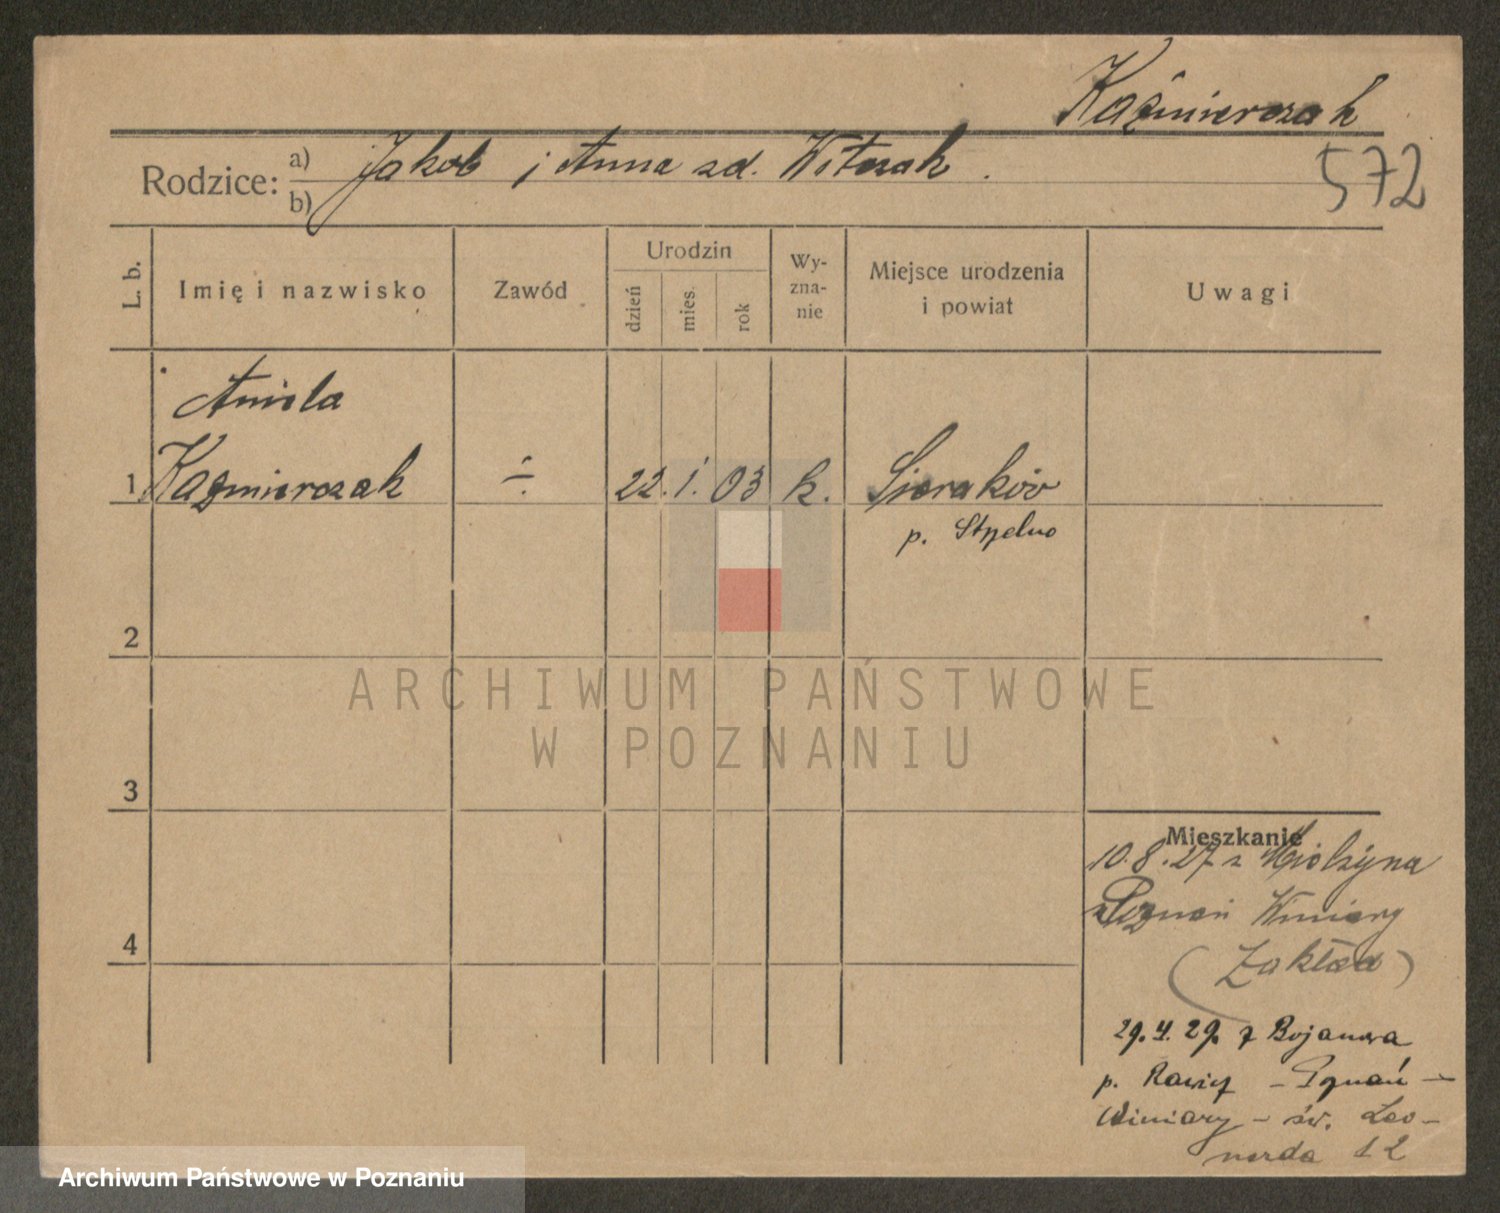 Kaźmierczak
572
Rodzice: a) b) Jakob i Anna zd. Witczak.
L. b.
Imię i nazwisko
Zawód
Urodzin
dzień
mies.
rok
Wy-
zna-
nie
Miejsce urodzenia
i powiat
Uwagi
Aniela
1 Kaźmierczak ÷ 22. 1. 03 k. Sieraków
p. Strzelno
2
3
4
ARCHIWUM PAŃSTWOWE
W POZNANIU
Mieszkanie
10.8.27 z Mielżyna
Poznań Winiary
(Zakład)
29.4.29. z Bojanowa
p. Rawicz – Poznań –
Winiary – św. Leo-
narda 12
Archiwum Państwowe w Poznaniu